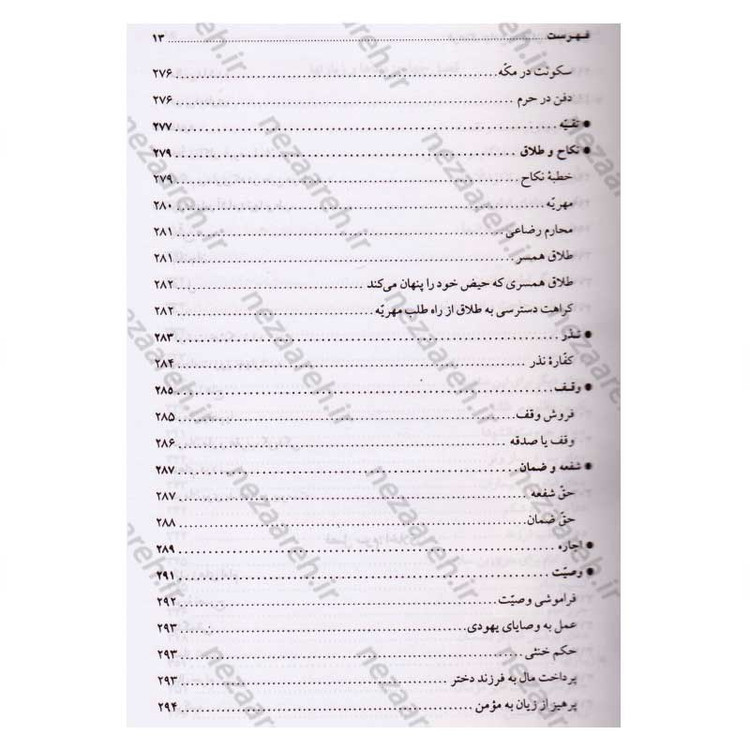 فهرست ........ ۱۳
سکونت در مکّه ........ ۲۷۶
دفن در حرم ........ ۲۷۶
● تقیّه ........ ۲۷۷
● نکاح و طلاق ........ ۲۷۹
خطبهٔ نکاح ........ ۲۷۹
مهریّه ........ ۲۸۰
محارم رضاعی ........ ۲۸۱
طلاق همسر ........ ۲۸۱
طلاق همسری که حیض خود را پنهان می‌کند ........ ۲۸۲
کراهت دسترسی به طلاق از راه طلب مهریّه ........ ۲۸۲
● نـذر ........ ۲۸۳
کفّارهٔ نذر ........ ۲۸۴
● وقـف ........ ۲۸۵
فروش وقف ........ ۲۸۵
وقف یا صدقه ........ ۲۸۶
● شفعه و ضمان ........ ۲۸۷
حقّ شفعه ........ ۲۸۷
حقّ ضمان ........ ۲۸۸
● اجاره ........ ۲۸۹
● وصیّت ........ ۲۹۱
فراموشی وصیّت ........ ۲۹۲
عمل به وصایای یهودی ........ ۲۹۳
حکم خنثی ........ ۲۹۳
پرداخت مال به فرزند دختر ........ ۲۹۳
پرهیز از زیان به مؤمن ........ ۲۹۴
nezaareh.ir